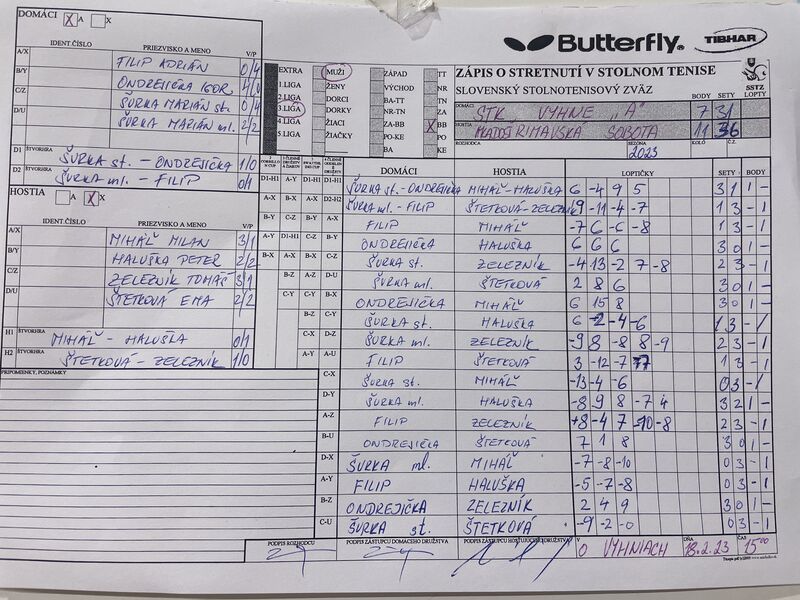 DOMÁCI X A X
IDENT.ČÍSLO PRIEZVISKO A MENO V/P
A/X FILIP ADRIÁN 0/4
B/Y ONDREJIČKA IGOR 4/0
C/Z ŠURKA MARIÁN st. 0/4
D/U ŠURKA MARIÁN ml. 2/2
D1 ŠTVORHRA ŠURKA st. - ONDREJIČKA 1/0
D2 ŠURKA ml. - FILIP 0/1
HOSTIA A X X
IDENT.ČÍSLO PRIEZVISKO A MENO V/P
A/X MIHÁĽ MILAN 3/1
B/Y HALUŠKA PETER 2/2
C/Z ŽELEZNÍK TOMÁŠ 3/1
D/U ŠTETKOVÁ EMA 2/2
H1 ŠTVORHRA MIHÁĽ - HALUŠKA 0/1
H2 ŠTVORHRA ŠTETKOVÁ - ŽELEZNÍK 1/0
PRIPOMIENKY, POZNÁMKY
Butterfly TIBHAR
EXTRA MUŽI ZÁPAD TT
1 LIGA ŽENY VÝCHOD NR
2 LIGA DORCI BA-TT TN
3 LIGA DORKY NR-TN ZA
4 LIGA ŽIACI ZA-BB X BB
5 LIGA ŽIAČKY PO-KE PO
KE
ZÁPIS O STRETNUTÍ V STOLNOM TENISE
SLOVENSKÝ STOLNOTENISOVÝ ZVÄZ SSTZ
BODY SETY LOPTY
DOMÁCI STK VYHNE "A" 7 31
HOSTIA MLADOSŤ RIMAVSKÁ SOBOTA 11 36
ROZHODCA SEZÓNA 2023 KOLO Č.
DOMÁCI HOSTIA LOPTIČKY SETY BODY
D1-H1 A-Y D1-H1 D1-H1 ŠURKA st. - ONDREJIČKA MIHÁĽ - HALUŠKA 6 -4 9 5 3 1 1 -
A-X B-X A-X D2-H2 ŠURKA ml. - FILIP ŠTETKOVÁ - ŽELEZNÍK 9 -11 -4 -7 1 3 - 1
B-Y C-Z B-Y A-X FILIP MIHÁĽ -7 6 -6 -8 1 3 - 1
A-Y D1-H1 C-Z B-Y ONDREJIČKA HALUŠKA 6 6 6 3 0 1 -
B-X A-X B-X C-Z ŠURKA st. ŽELEZNÍK -4 13 -2 7 -8 2 3 - 1
B-Z A-Z D-U ŠURKA ml. ŠTETKOVÁ 2 8 6 3 0 1 -
C-Y C-Y B-X ONDREJIČKA MIHÁĽ 6 15 8 3 0 1 -
B-Z C-Y ŠURKA st. HALUŠKA 6 -2 -4 -6 1 3 - 1
C-X D-Z ŠURKA ml. ŽELEZNÍK -9 8 -8 8 -9 2 3 - 1
A-Y A-U FILIP ŠTETKOVÁ 3 -12 -7 1 3 - 1
C-X ŠURKA st. MIHÁĽ -13 -4 -6 0 3 - 1
D-Y ŠURKA ml. HALUŠKA -8 9 8 -7 4 3 2 1 -
A-Z FILIP ŽELEZNÍK +8 -4 7 -10 -8 2 3 - 1
B-U ONDREJIČKA ŠTETKOVÁ 7 1 8 3 0 1 -
D-X ŠURKA ml. MIHÁĽ -7 -8 -10 0 3 - 1
A-Y FILIP HALUŠKA -5 -7 -8 0 3 - 1
B-Z ONDREJIČKA ŽELEZNÍK 2 4 9 3 0 1 -
C-U ŠURKA st. ŠTETKOVÁ -9 -2 -0 0 3 - 1
PODPIS ROZHODCU PODPIS ZÁSTUPCU DOMÁCEHO DRUŽSTVA PODPIS ZÁSTUPCU HOSŤUJÚCEHO DRUŽSTVA V O VYHNIACH DŇA 18.2.23 ČAS 15:00